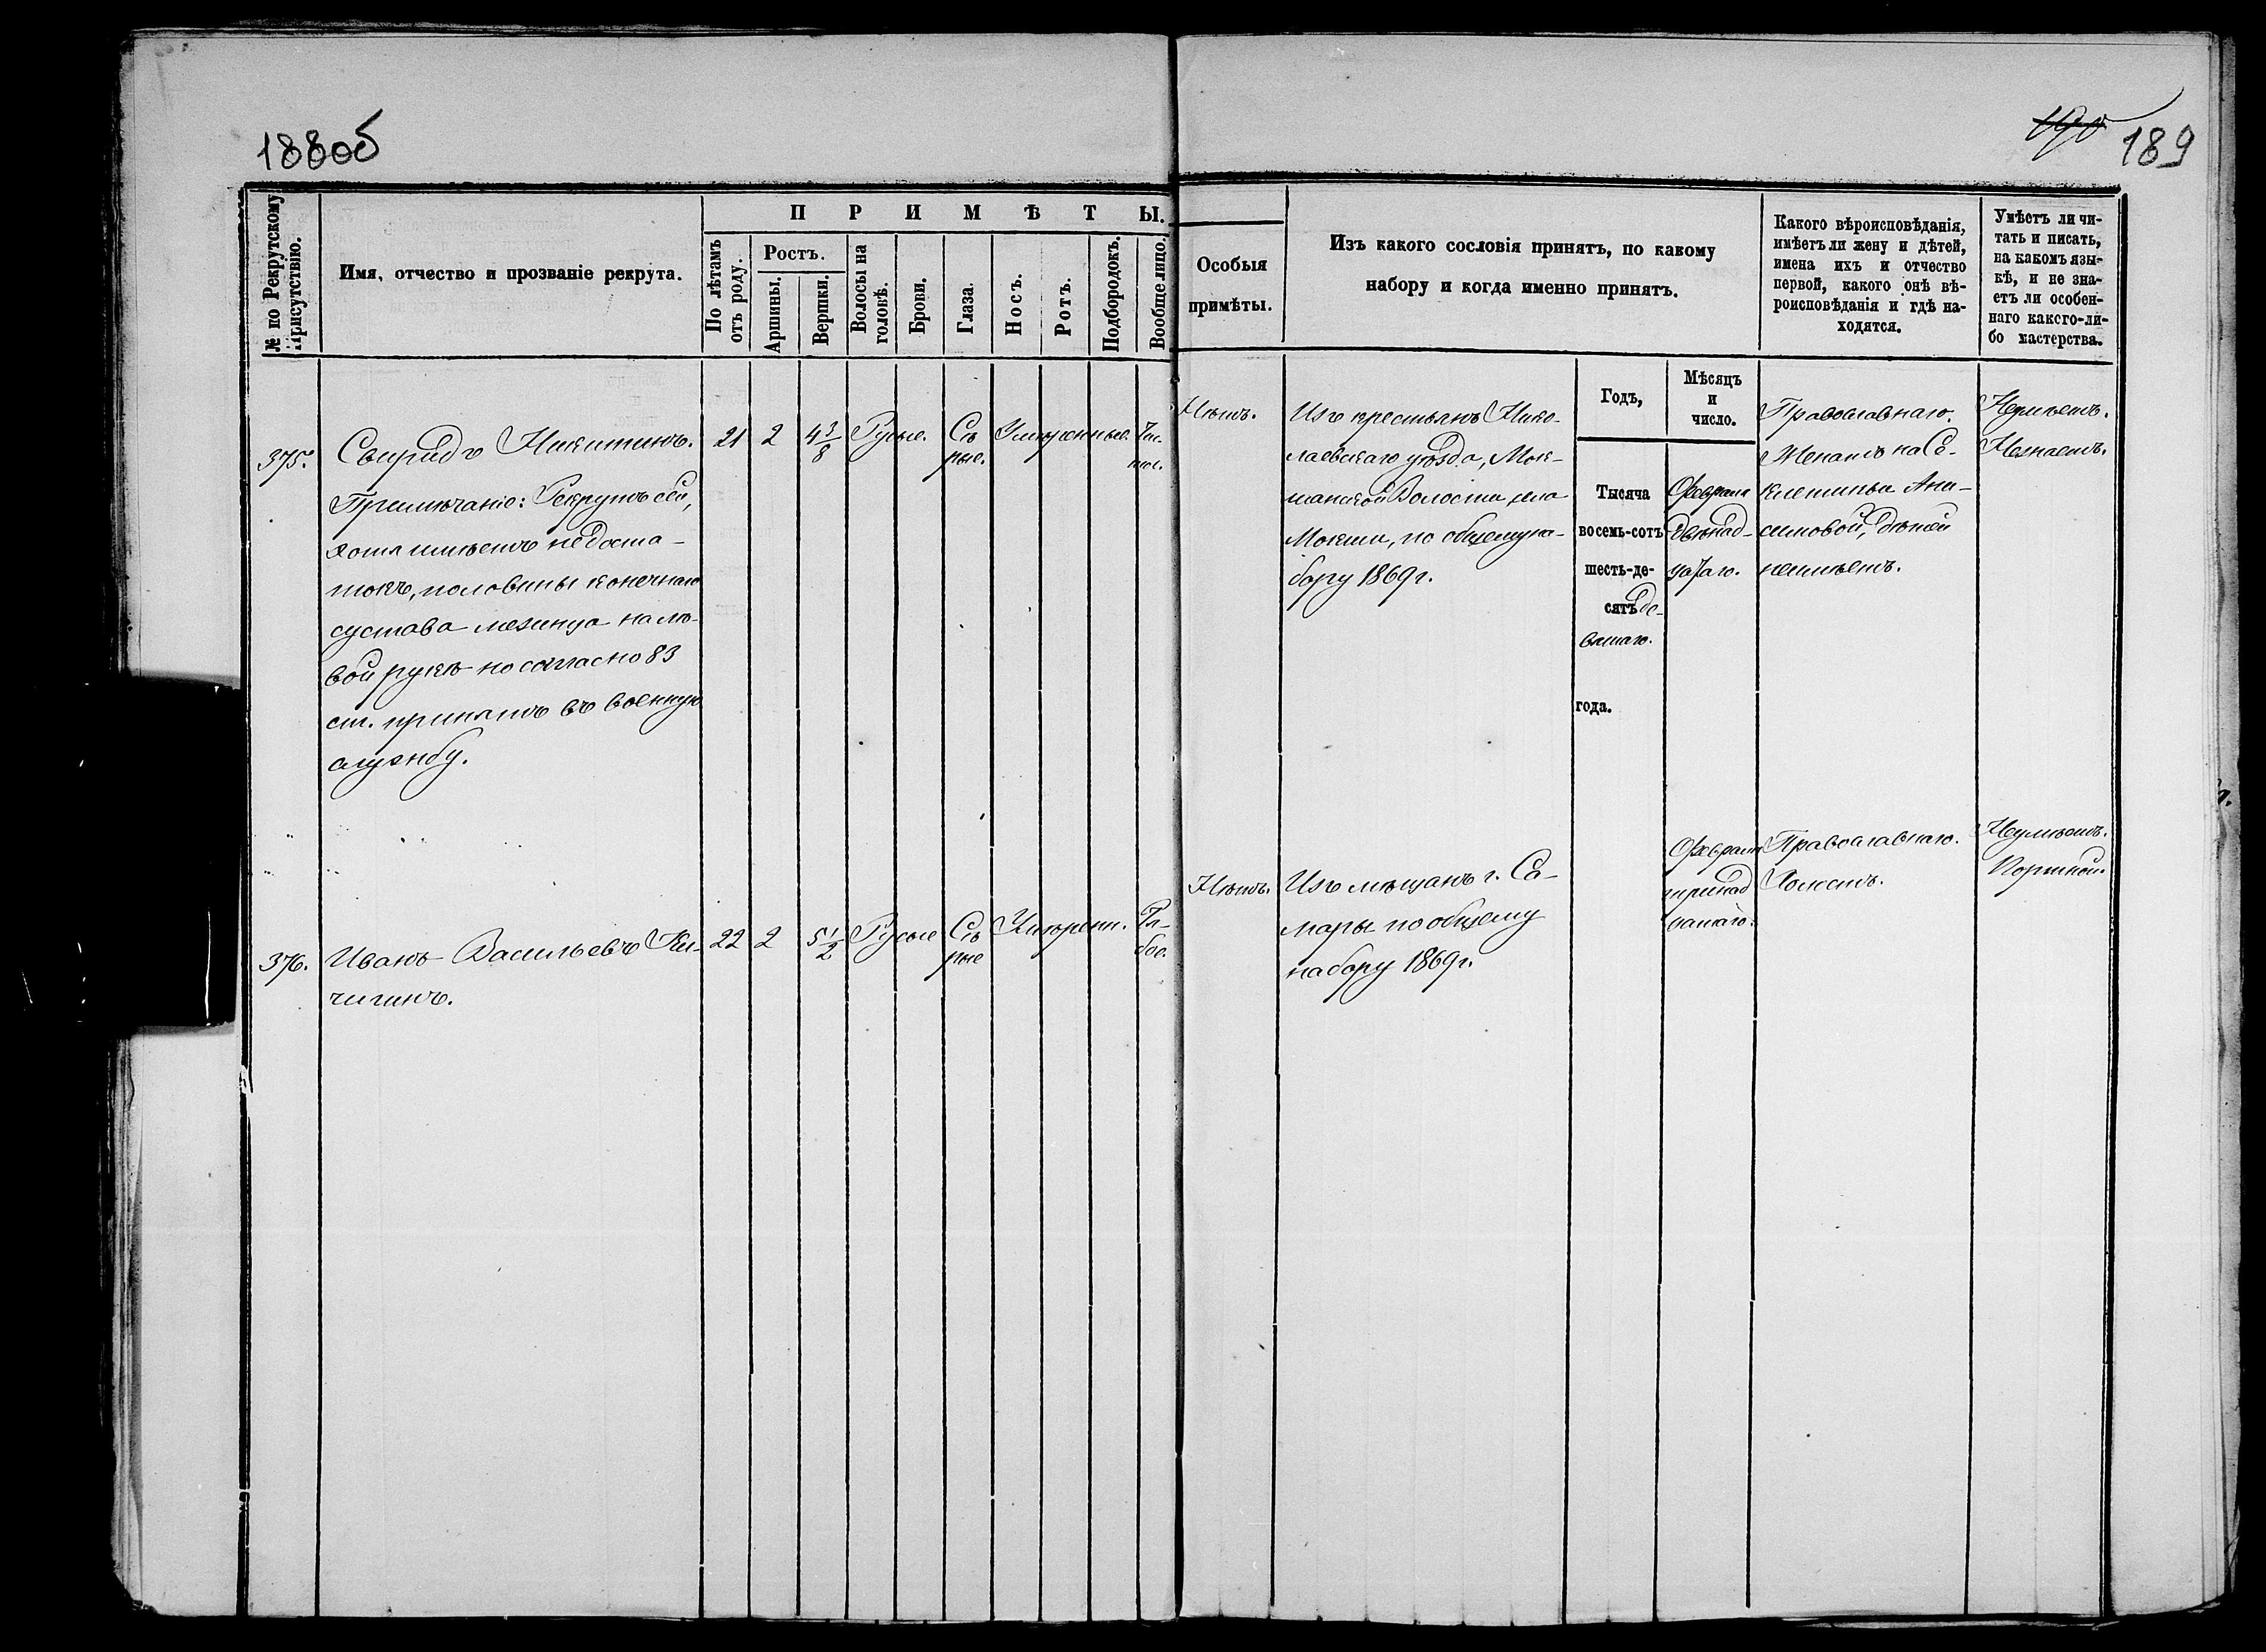 188об
190 189
№ по Рекрутскому Присутствію.
Имя, отчество и прозваніе рекрута.
ПРИМѢТЫ.
По лѣтамъ отъ роду.
Ростъ.
Аршины.
Вершки.
Волосы на головѣ.
Брови.
Глаза.
Носъ.
Ротъ.
Подбородокъ.
Вообще лицо.
Особыя
примѣты.
Изъ какого сословія принятъ, по какому
набору и когда именно принятъ.
Какого вѣроисповѣданія,
имѣетъ ли жену и дѣтей,
имена ихъ и отчество
первой, какого онѣ вѣ-
роисповѣданія и гдѣ на-
ходятся.
Умѣетъ ли чи-
тать и писать,
на какомъ язы-
кѣ, и не зна-
етъ ли особен-
наго какого-ли-
бо мастерства.
Годъ,
Мѣсяцъ
и
число.
375.
Свиридъ Никитинъ.
Примѣчаніе: Рекрутъ сей,
хотя имѣетъ недоста-
токъ, половины конечнаго
сустава мезинца на лѣ-
вой рукѣ но согласно 83
ст. принятъ въ военную
службу.
21
2
4 3/8
Русые.
Сѣ
рые.
Умѣренные.
Чис-
тое.
Нѣтъ.
Изъ крестьянъ Нико-
лаевскаго уѣзда, Мок-
шанской Волости, села
Мокши, по общему на-
бору 1869 г.
Тысяча
восемь-сотъ
шесть-де-
сятъ де-
вятаго.
года.
Февраля
двѣнад-
цатаго.
Православнаго.
Женатъ на Се-
клетиньи Ани-
симовой, дѣтей
неимѣетъ.
Неумѣетъ.
Незнаетъ.
376.
Иванъ Васильевъ Ки-
чигинъ.
22
2
5 1/2
Русые
Сѣ
рые
Умѣренн.
Ря-
бое.
Нѣтъ.
Изъ мѣщанъ г. Са-
мары по общему
набору 1869 г.
Февраля
тринад
цатаго.
Православнаго.
Холостъ.
Неумѣетъ.
Портной.